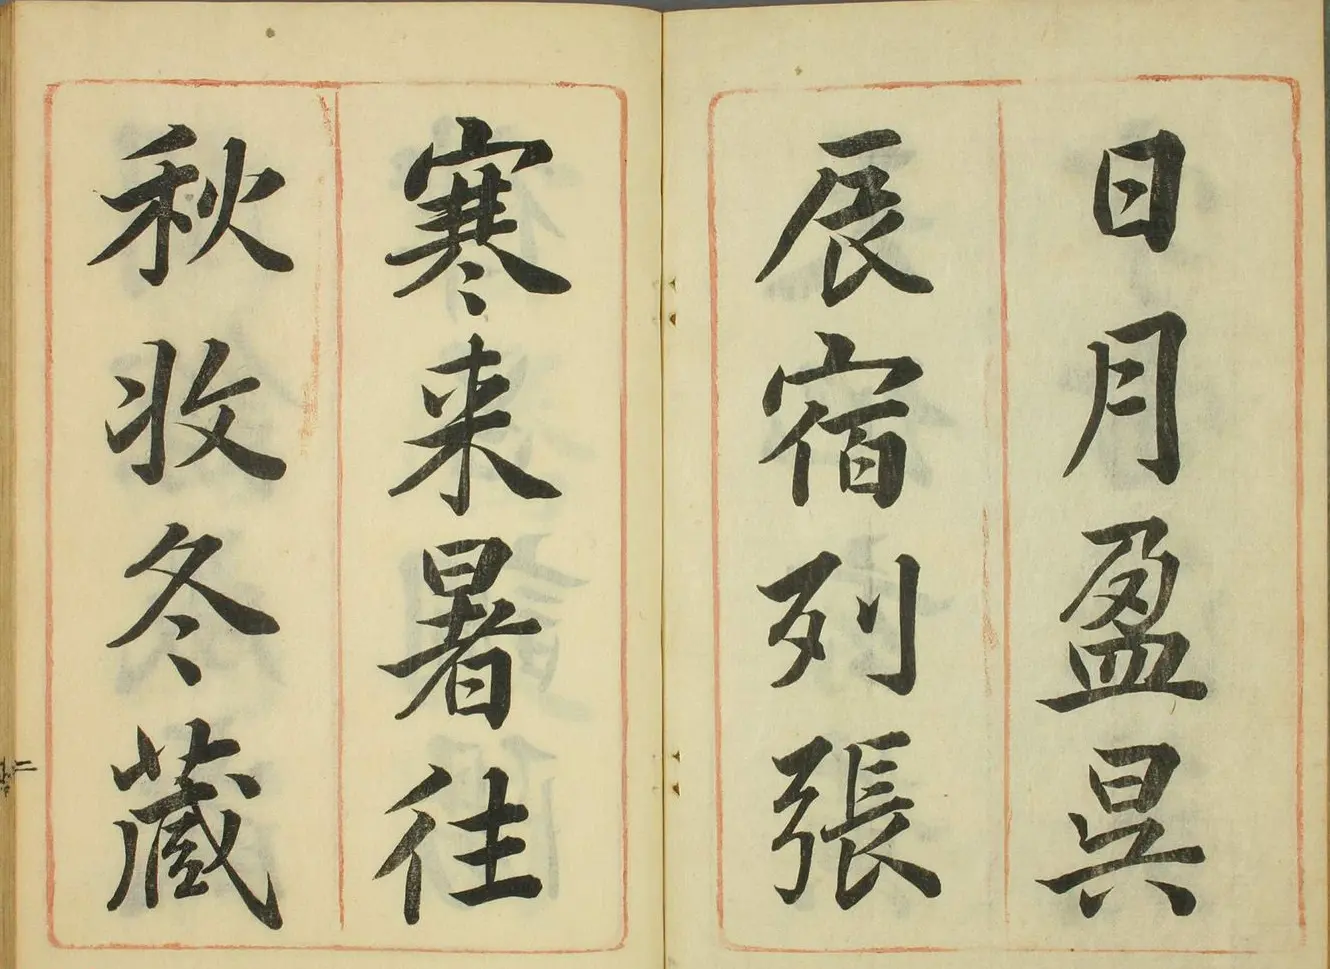 日月盈昃
辰宿列張
寒来暑往
秋收冬蔵
二